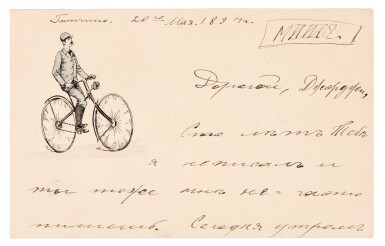 Гатчино. 20го Мая. 1894 г.
Дорогой, Джорджи,
Сто лѣтъ Тебѣ
я не писалъ и
ты тоже мнѣ не-часто
пишешь. Сегодня утромъ